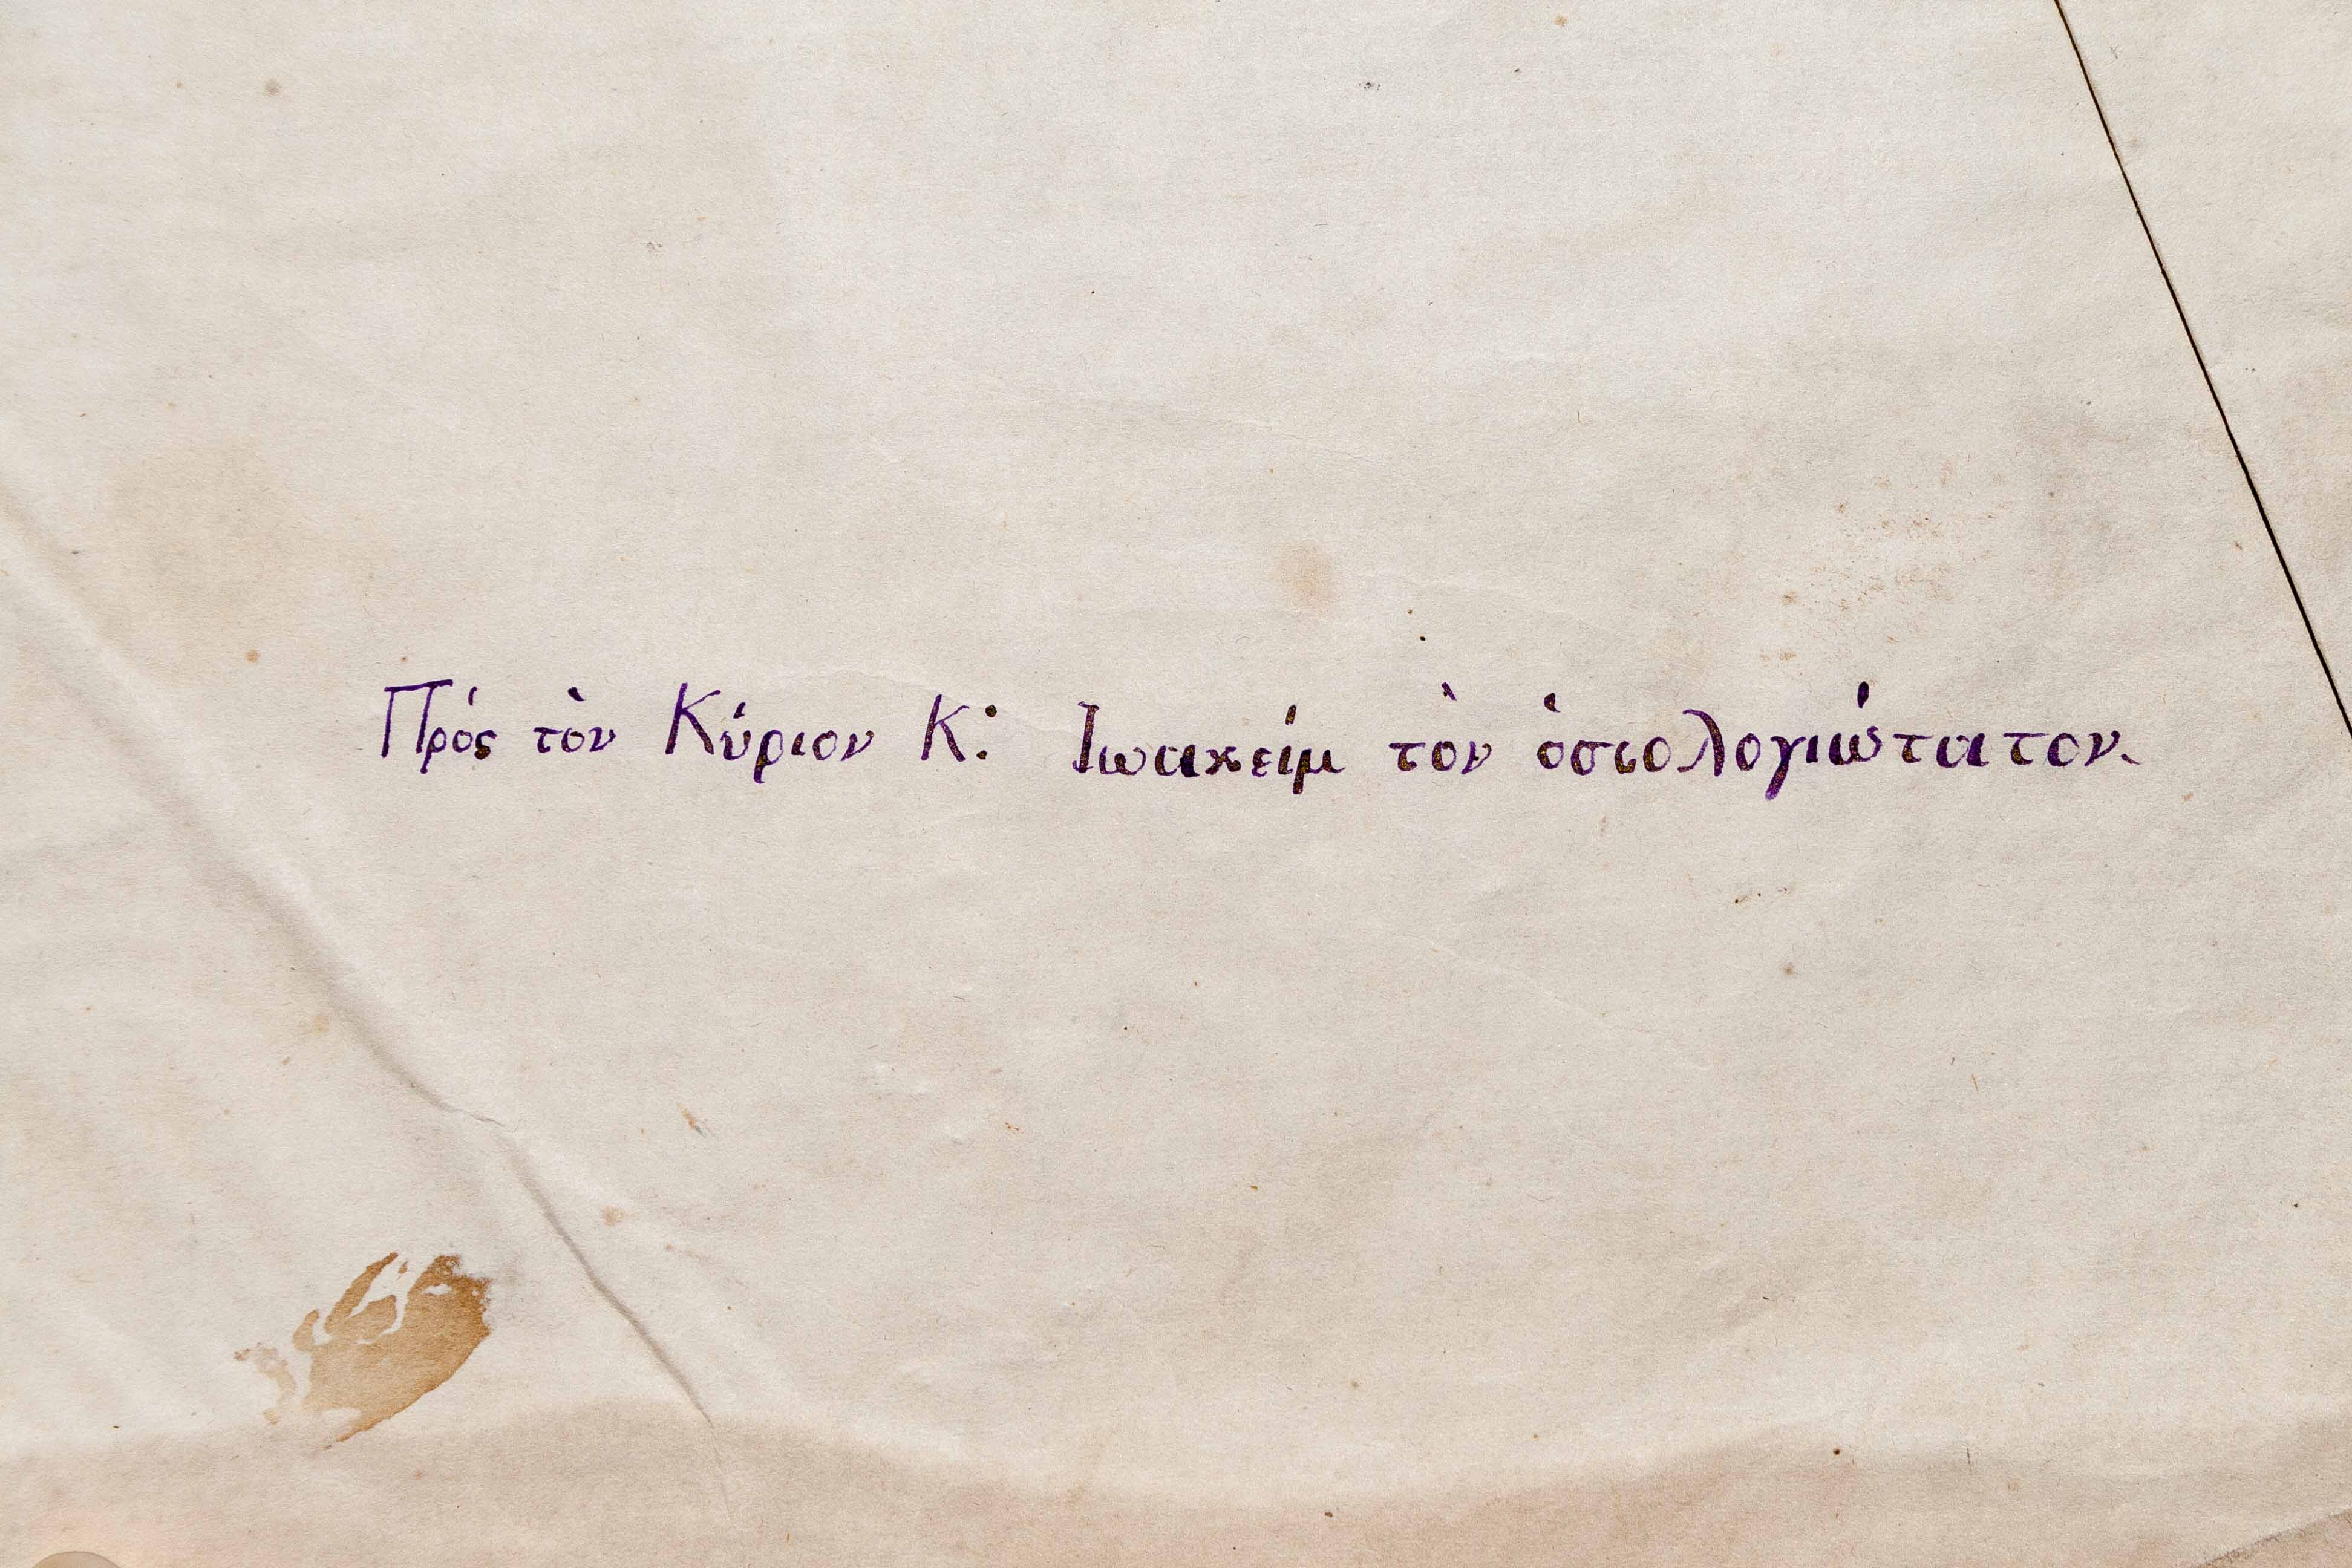 Πρός τὸν Κύριον Κ: Ἰωακείμ τὸν ὁσιολογιώτατον.